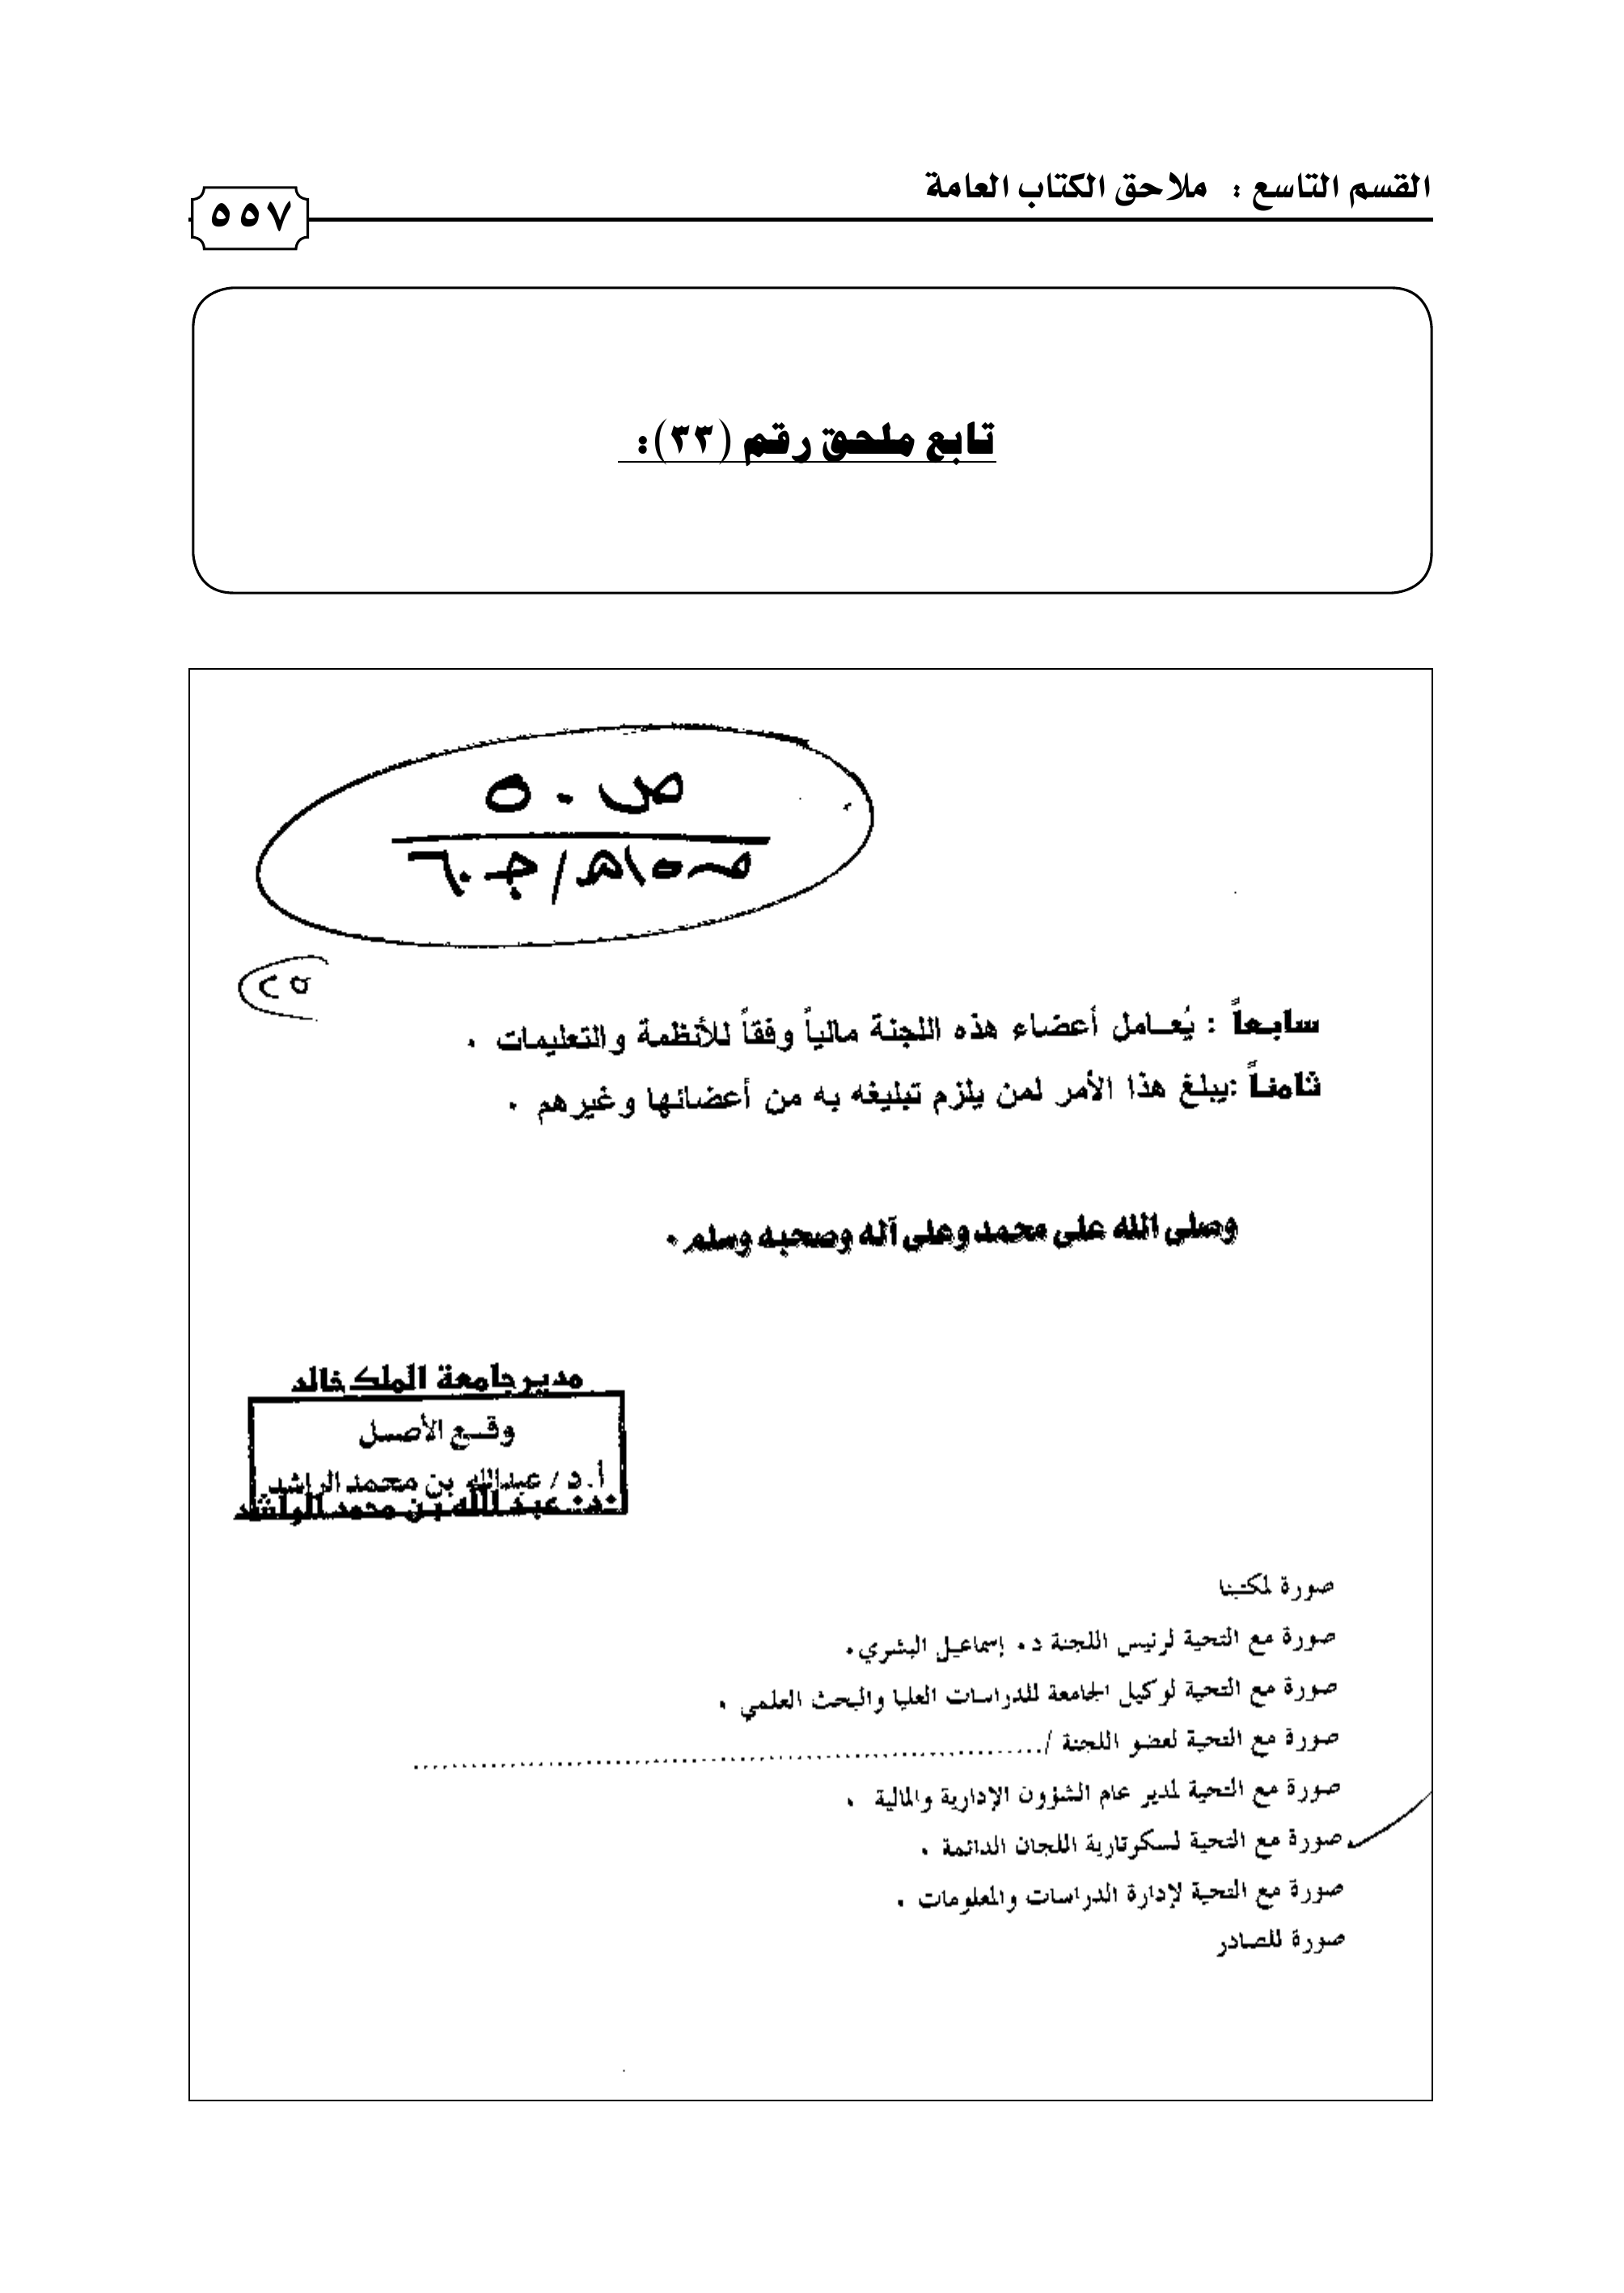 القسم التاسع : ملاحق الكتاب العامة
٥٥٧
تابع ملحق رقم (٣٣):
ص ٥٠
٢٥
سابعاً : يُعامل أعضاء هذه اللجنة مالياً وفقاً للأنظمة والتعليمات .
ثامناً :يبلغ هذا الأمر لمن يلزم تبليغه به من أعضائها وغيرهم .
وصلى الله على محمد وعلى آله وصحبه وسلم .
مدير جامعة الملك خالد
وقع الأصل
أ.د / عبدالله بن محمد الراشد
أ.د. عبد الله بن محمد الراشد
صورة لمكتبنا
صورة مع التحية لرئيس اللجنة د. إسماعيل البشري.
صورة مع التحية لوكيل الجامعة للدراسات العليا والبحث العلمي .
صورة مع التحية لعضو اللجنة /................................................
صورة مع التحية لمدير عام الشؤون الإدارية والمالية .
صورة مع التحية لسكرتارية اللجان الدائمة .
صورة مع التحية لإدارة الدراسات والمعلومات .
صورة للصادر